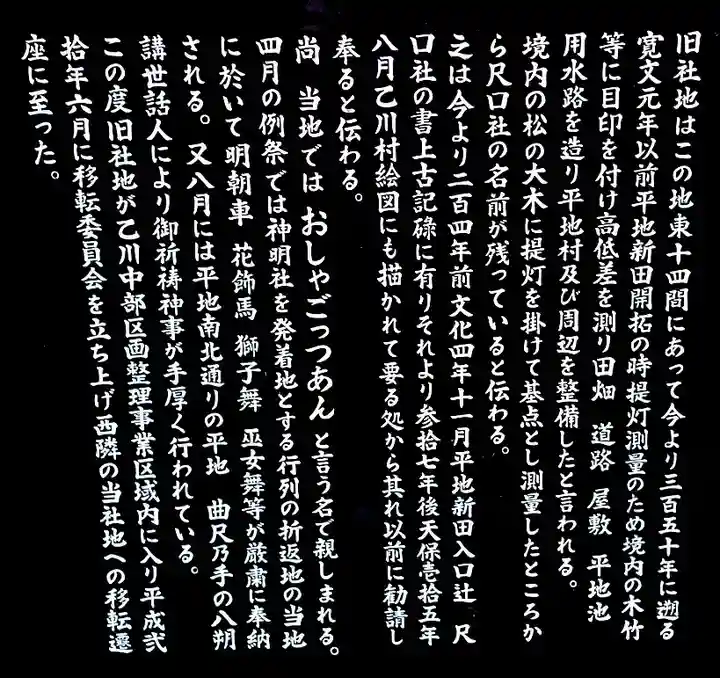 旧社地はこの地東十四間にあって今より三百五十年に遡る
寛文元年以前平地新田開拓の時提灯測量のため境内の木竹
等に目印を付け高低差を測り田畑　道路　屋敷　平地池
用水路を造り平地村及び周辺を整備したと言われる。
境内の松の大木に提灯を掛けて基点とし測量したところか
ら尺口社の名前が残っていると伝わる。
之は今より二百四年前文化四年十一月平地新田入口辻　尺
口社の書上古記碌に有りそれより参拾七年後天保壱拾五年
八月乙川村絵図にも描かれて要る処から其れ以前に勧請し
奉ると伝わる。
尚　当地では　おしゃごっつあん　と言う名で親しまれる。
四月の例祭では神明社を発着地とする行列の折返地の当地
に於いて明朝車　花飾馬　獅子舞　巫女舞等が厳粛に奉納
される。又八月には平地南北通りの平地　曲尺乃手の八朔
講世話人により御祈祷神事が手厚く行われている。
この度旧社地が乙川中部区画整理事業区域内に入り平成弐
拾年六月に移転委員会を立ち上げ西隣の当社地への移転遷
座に至った。